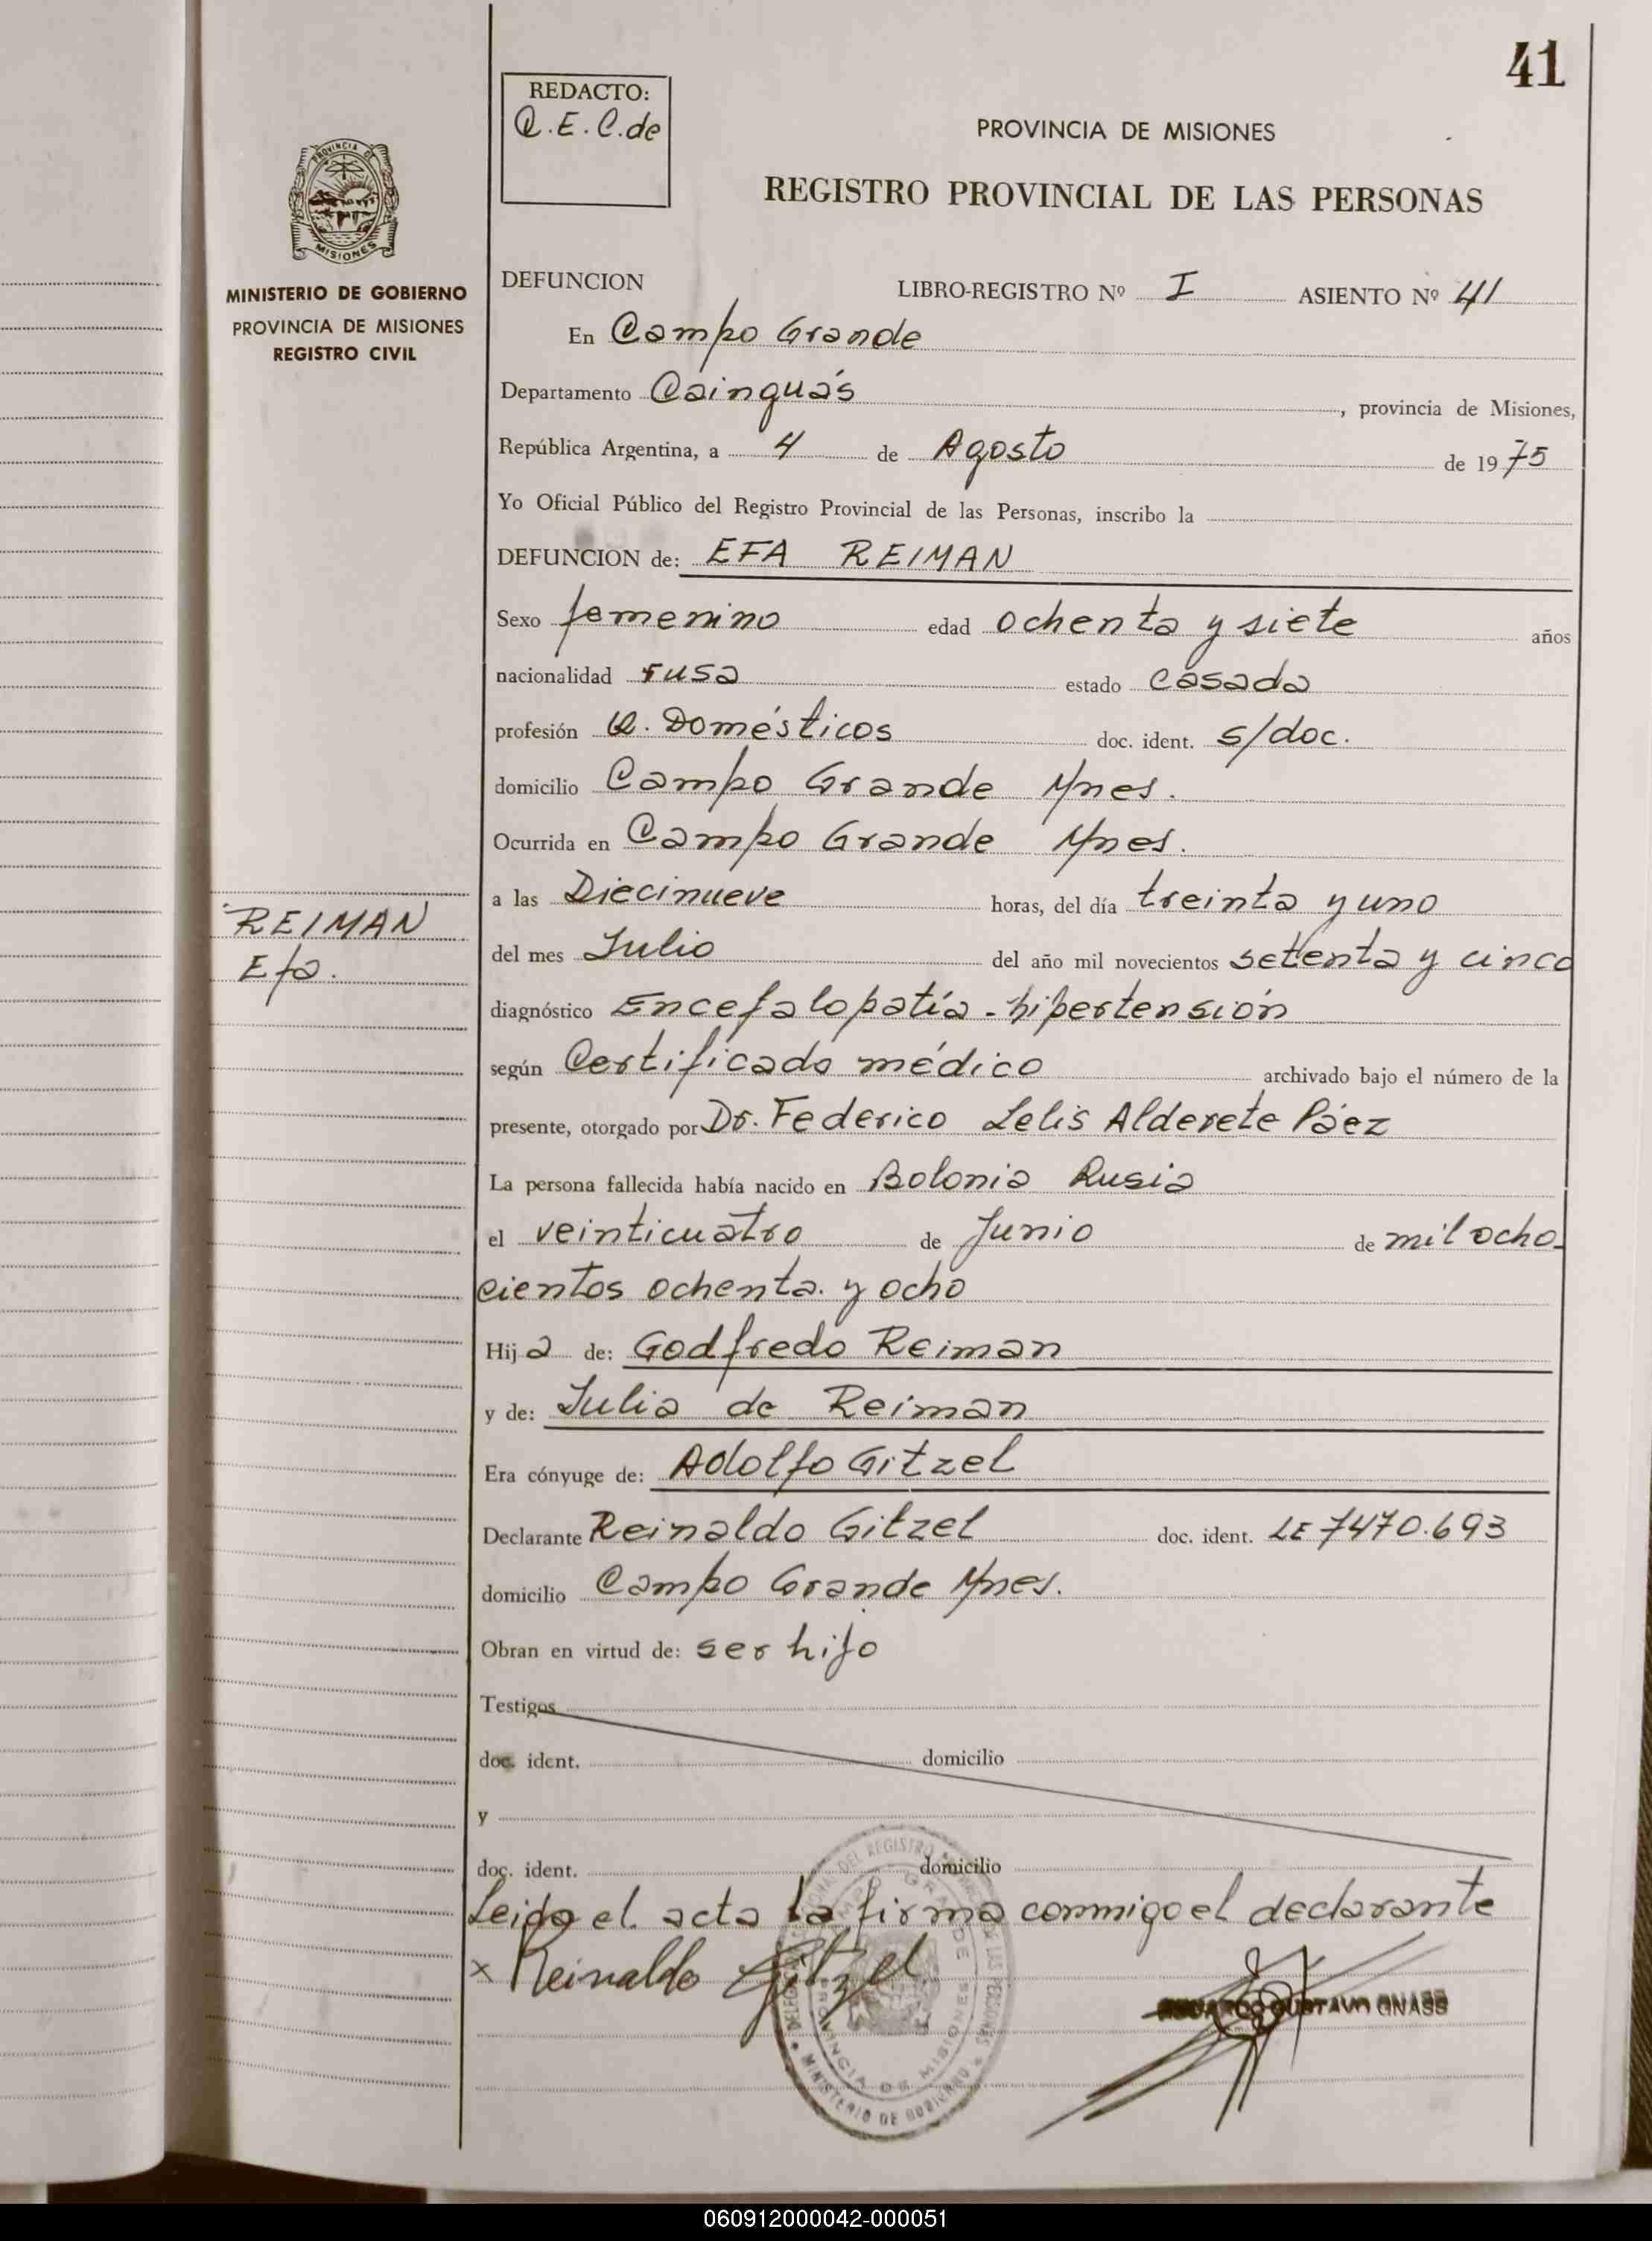 41
REDACTO:
Q.E.C.de
PROVINCIA DE MISIONES
REGISTRO PROVINCIAL DE LAS PERSONAS
PROVINCIA DE
MISIONES
MINISTERIO DE GOBIERNO
PROVINCIA DE MISIONES
REGISTRO CIVIL
DEFUNCION LIBRO-REGISTRO Nº I ASIENTO Nº 41
En Campo Grande
Departamento Cainguás, provincia de Misiones,
República Argentina, a 4 de Agosto de 1975
Yo Oficial Público del Registro Provincial de las Personas, inscribo la
DEFUNCION de: EFA REIMAN
Sexo femenino edad ochenta y siete años
nacionalidad rusa estado casada
profesión Q. Domésticos doc. ident. s/doc.
domicilio Campo Grande Mnes.
Ocurrida en Campo Grande Mnes.
a las Diecinueve horas, del día treinta y uno
REIMAN
Efa.
del mes Julio del año mil novecientos setenta y cinco
diagnóstico Encefalopatía - hipertensión
según Certificado médico archivado bajo el número de la
presente, otorgado por Dr. Federico Lelis Alderete Páez
La persona fallecida había nacido en Bolonia Rusia
el veinticuatro de Junio de mil ocho
cientos ochenta. y ocho
Hija de: Godfredo Reiman
y de: Julia de Reiman
Era cónyuge de: Adolfo Gitzel
Declarante Reinaldo Gitzel doc. ident. LE 7470.693
domicilio Campo Grande Mnes.
Obran en virtud de: ser hijo
Testigos
doc. ident. domicilio
y
doc. ident. domicilio
Leida el acta la firma conmigo el declarante
x Reinaldo Gitzel
GUSTAVO
DEL REGISTRO DE LAS PERSONAS
CAMPO GRANDE
PROVINCIA DE MISIONES
MINISTERIO DE GOBIERNO
060912000042-000051